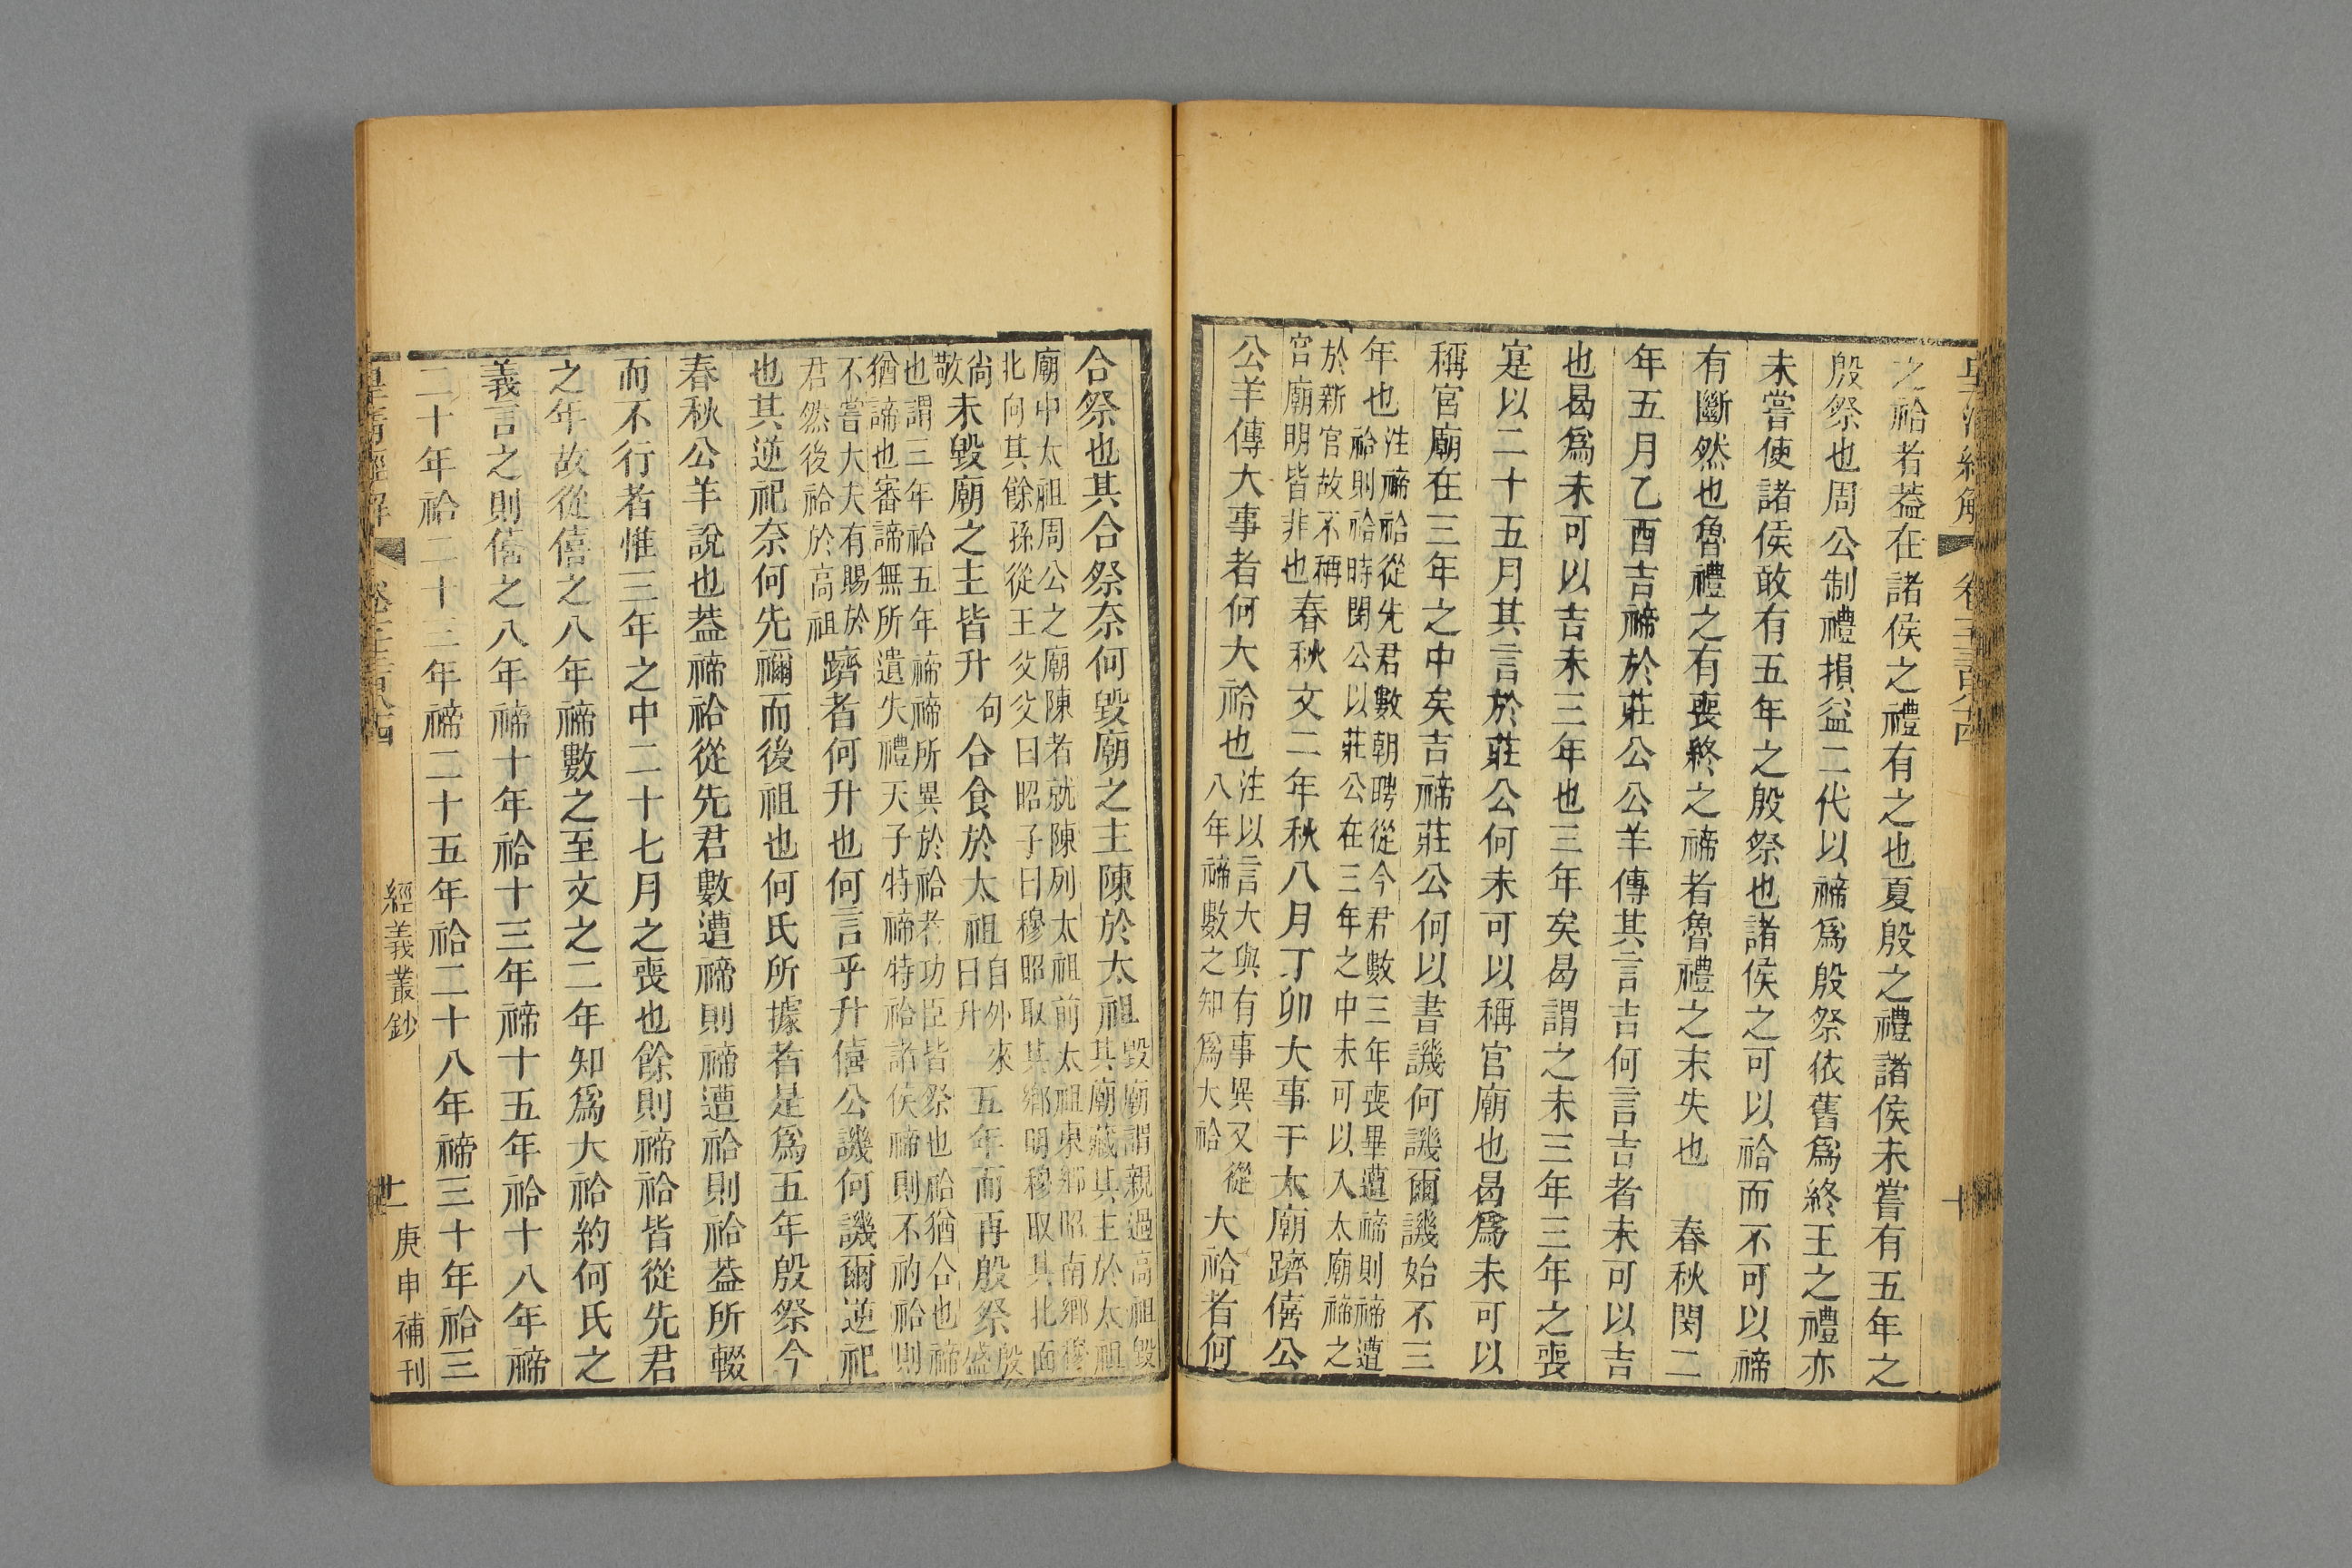 之祫者葢在諸侯之禮有之也夏殷之禮諸侯未嘗有五年之
殷祭也周公制禮損益二代以禘爲殷祭依舊爲終王之禮亦
未嘗使諸侯敢有五年之殷祭也諸侯之可以祫而不可以禘
有斷然也魯禮之有喪終之禘者魯禮之末失也　春秋閔二
年五月乙酉吉禘於莊公公羊傳其言吉何言吉者未可以吉
也曷爲未可以吉未三年也三年矣曷謂之未三年三年之喪
寔以二十五月其言於莊公何未可以稱宮廟也曷爲未可以
稱宮廟在三年之中矣吉禘莊公何以書譏何譏爾譏始不三
年也注禘祫從先君數朝聘從今君數三年喪畢遭禘則禘遭
祫則祫時閔公以莊公在三年之中未可以入太廟禘之
於新宮故不稱
宮廟明皆非也春秋文二年秋八月丁卯大事于太廟躋僖公
公羊傳大事者何大祫也注以言大與有事異又從
八年禘數之知爲大祫大祫者何
合祭也其合祭奈何毀廟之主陳於太祖毀廟謂親過高祖毀
其廟藏其主於太祖
廟中太祖周公之廟陳者就陳列太祖前太祖東鄉昭南鄉穆
北向其餘孫從王父父曰昭子曰穆昭取其鄉明穆取其北面
尚
敬未毀廟之主皆升句合食於太祖自外來
曰升五年而再殷祭殷
盛
也謂三年祫五年禘禘所異於祫者功臣皆祭也祫猶合也禘
猶諦也審諦無所遺失禮天子特禘特祫諸侯禘則不礿祫則
不嘗大夫有賜於
君然後祫於高祖躋者何升也何言乎升僖公譏何譏爾逆祀
也其逆祀奈何先禰而後祖也何氏所據者是爲五年殷祭今
春秋公羊說也葢禘祫從先君數遭禘則禘遭祫則祫葢所輟
而不行者惟三年之中二十七月之喪也餘則禘祫皆從先君
之年故從僖之八年禘數之至文之二年知爲大祫約何氏之
義言之則僖之八年禘十年祫十三年禘十五年祫十八年禘
二十年祫二十三年禘二十五年祫二十八年禘三十年祫三
皇清經解
經義叢鈔
庚申補刊